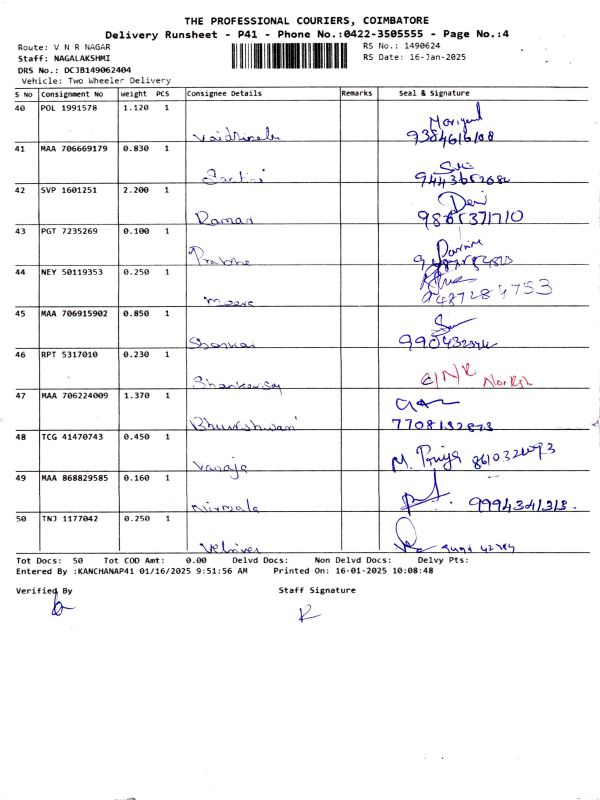 THE PROFESSIONAL COURIERS, COIMBATORE
Delivery Runsheet - P41 - Phone No.:0422-3505555 - Page No.:4
Route: V N R NAGAR RS No.: 1490624
Staff: NAGALAKSHMI RS Date: 16-Jan-2025
DRS No.: DCJB149062404
Vehicle: Two Wheeler Delivery
S No Consignment No Weight PCS Consignee Details Remarks Seal & Signature
40 POL 1991578 1.120 1
9384616108
41 MAA 706669179 0.830 1
42 SVP 1601251 2.200 1 Devi
Raman
43 PGT 7235269 0.100 1
Prabha
44 NEY 50119353 0.250 1
9487284753
45 MAA 706915902 0.850 1
Shankar
46 RPT 5317010 0.230 1
47 MAA 706224009 1.370 1
48 TCG 41470743 0.450 1
Vanaja M. Priya
49 MAA 868829585 0.160 1
Nirmala 9994341313
50 TNJ 1177042 0.250 1
Tot Docs: 50 Tot COD Amt: 0.00 Delvd Docs: Non Delvd Docs: Delvy Pts:
Entered By :KANCHANAP41 01/16/2025 9:51:56 AM Printed On: 16-01-2025 10:08:48
Verified By Staff Signature